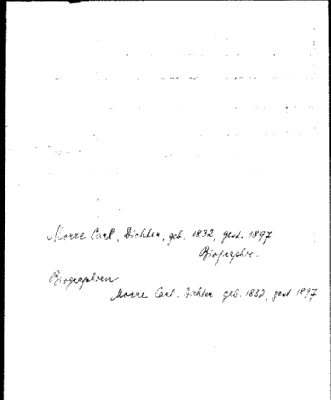 Morre Carl, Dichter, geb. 1832, gest. 1897
Biographie.
Biographien
Morre Carl. Dichter geb. 1832, gest 1897